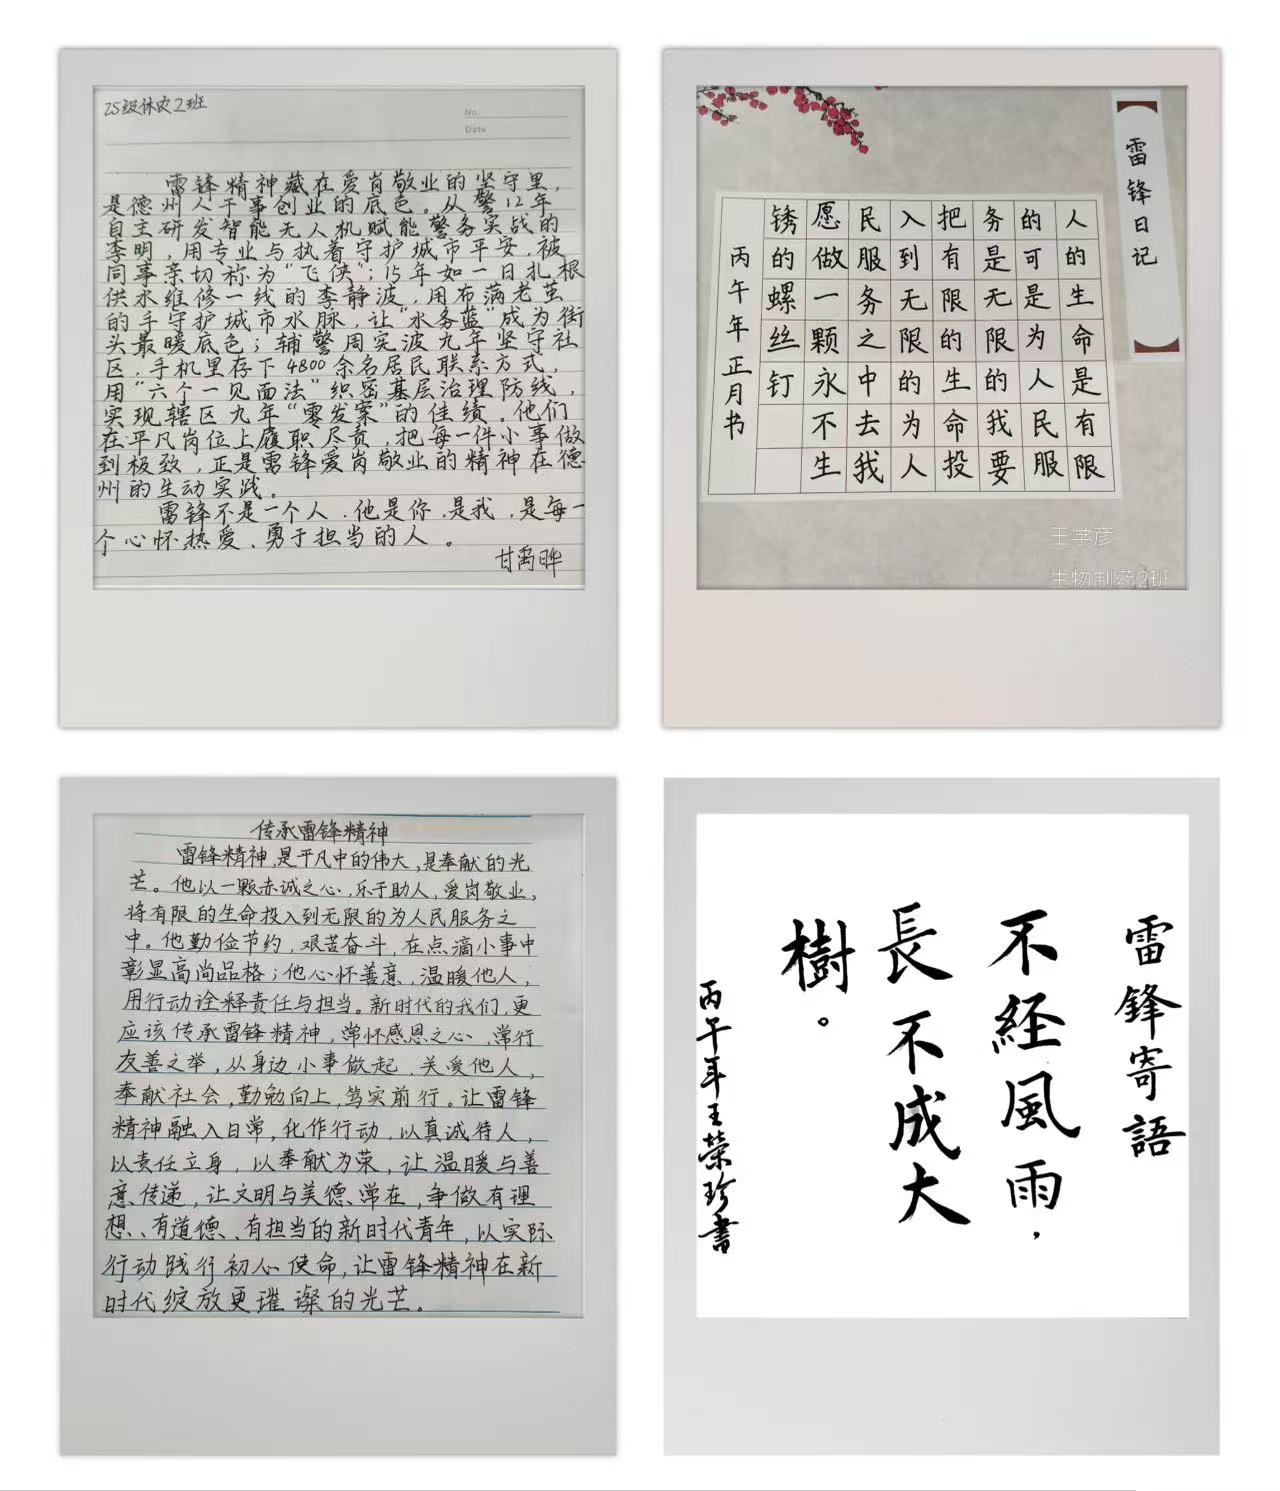 25级休农2班
No.
Date
雷锋精神藏在爱岗敬业的坚守里，
是德州人干事创业的底色。从警12年
自主研发智能无人机赋能警务实战的
李明，用专业与执着守护城市平安，被
同事亲切称为“飞侠”；15年如一日扎根
供水维修一线的李静波，用布满老茧
的手守护城市水脉，让“水务蓝”成为街
头最暖底色；辅警周实波九年坚守社
区，手机里存下4800余名居民联系方式，
用“六个一见面法”织密基层治理防线，
实现辖区九年“零发案”的佳绩。他们
在平凡岗位上履职尽责，把每一件小事做
到极致，正是雷锋爱岗敬业的精神在德
州的生动实践。
雷锋不是一个人，他是你，是我，是每一
个心怀热爱、勇于担当的人。
甘禹晔
雷锋日记
人的生命是有限
的可是为人民服
务是无限的我要
把有限的生命投
入到无限的为人
民服务之中去我
愿做一颗永不生
锈的螺丝钉
丙午年正月书
王学彦
生物制药2班
传承雷锋精神
雷锋精神，是平凡中的伟大，是奉献的光
芒。他以一颗赤诚之心，乐于助人，爱岗敬业，
将有限的生命投入到无限的为人民服务之
中。他勤俭节约，艰苦奋斗，在点滴小事中
彰显高尚品格；他心怀善意，温暖他人，
用行动诠释责任与担当。新时代的我们，更
应该传承雷锋精神，常怀感恩之心，常行
友善之举，从身边小事做起，关爱他人，
奉献社会，勤勉向上，笃实前行。让雷锋
精神融入日常，化作行动，以真诚待人，
以责任立身，以奉献为荣，让温暖与善
意传递，让文明与美德常在，争做有理
想、有道德、有担当的新时代青年，以实际
行动践行初心使命，让雷锋精神在新
时代绽放更璀璨的光芒。
雷鋒寄語
不経風雨，
長不成大
樹。
丙午年王榮珍書